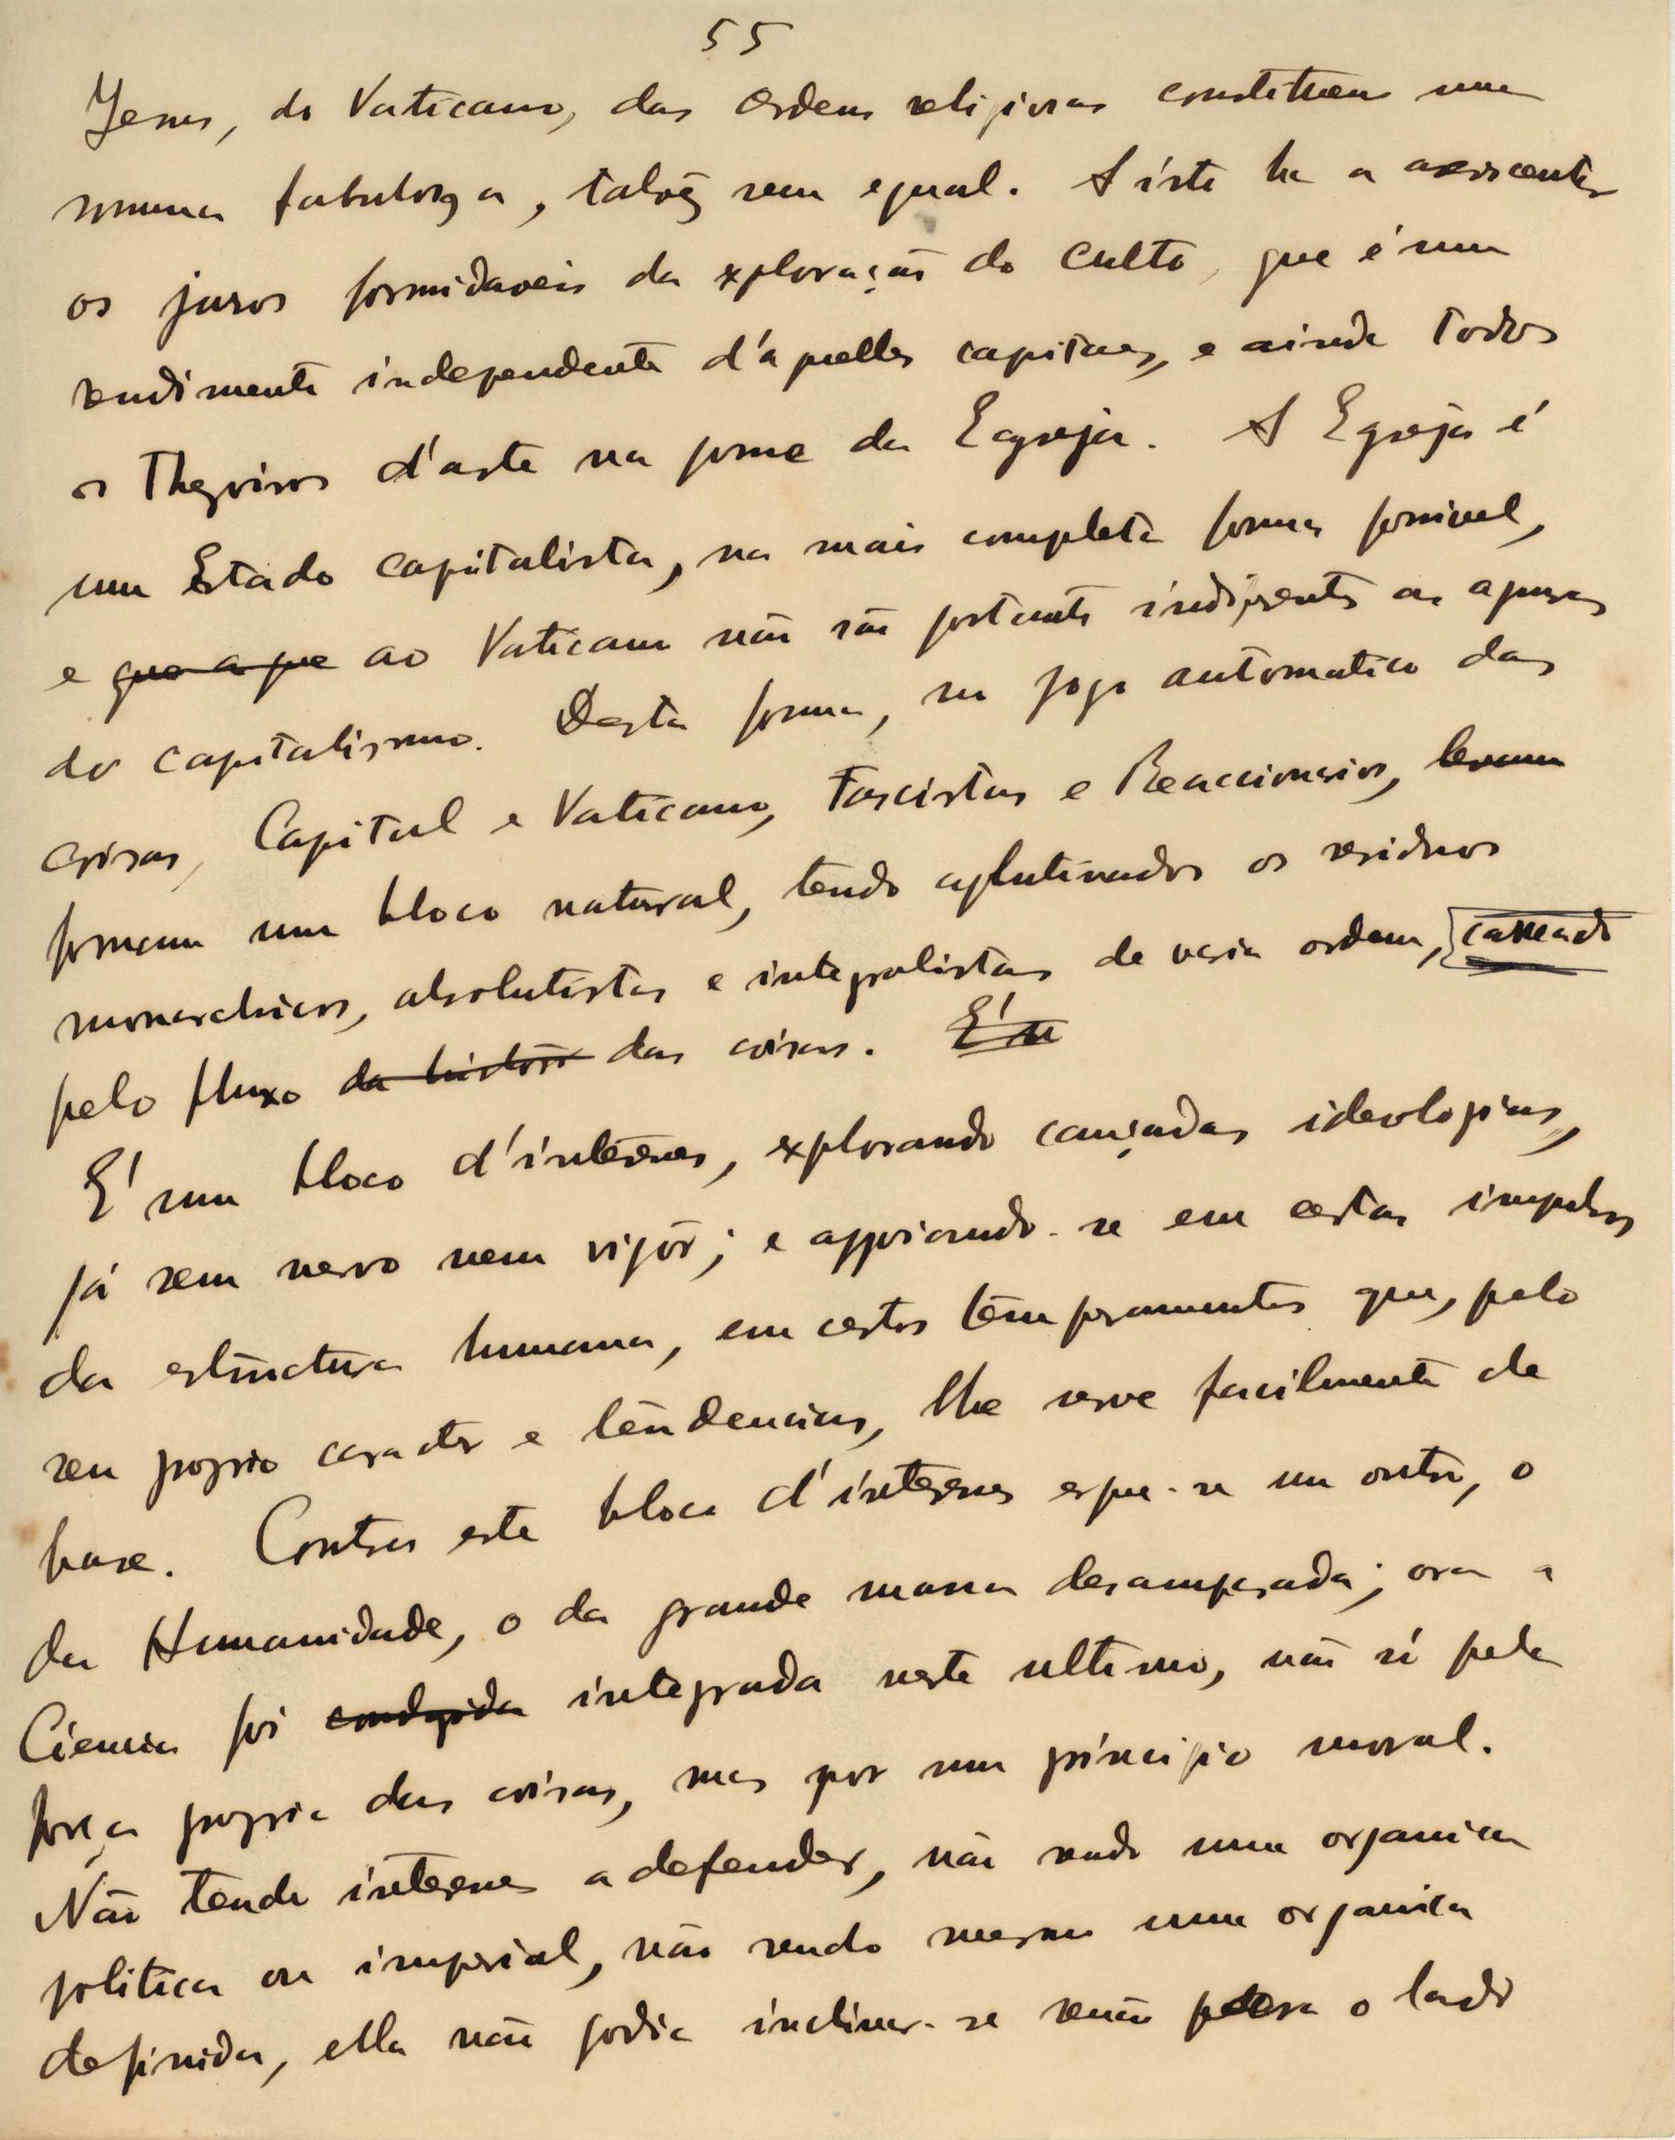 55
Jesus, do Vaticano, das Ordens religiosas constituem uma
somma fabulosa, talvêz sem egual. A isto ha a accrescentar
os juros formidaveis da exploração do culto, que é um
rendimento independente d'aquelles capitaes, e ainda todos
os Thezoiros d'arte na posse da Egreja. A Egreja é
um Estado capitalista, na mais completa forma possivel,
e que a que ao Vaticano não são portanto indiferentes as apuros
do capitalismo. Desta forma, no jogo automatico das
coisas, Capital e Vaticano, Fascistas e Reaccionarios,
formam um bloco natural, tendo aglutinados os residuos
monarchicos, absolutistas e integralistas de varia ordem,
pelo fluxo da histori das coisas. É u
É um bloco d'interesses, explorando cançadas ideologias,
já sem nervo nem vigôr; e appoiando-se em certos impulsos
da estructura humana, em certos temperamentos que, pelo
seu proprio caracter e tendencias, lhe serve facilmente de
base. Contra este bloco d'interesses ergue-se um outro, o
da Humanidade, o da grande massa desamparada; ora a
Ciencia foi integrada neste ultimo, não só pela
força propria das coisas, mas por um principio moral.
Não tendo interesses a defender, não sendo uma organica
politica ou imperial, não sendo mesmo uma organica
definida, ella não podia inclinar-se senão para o lado